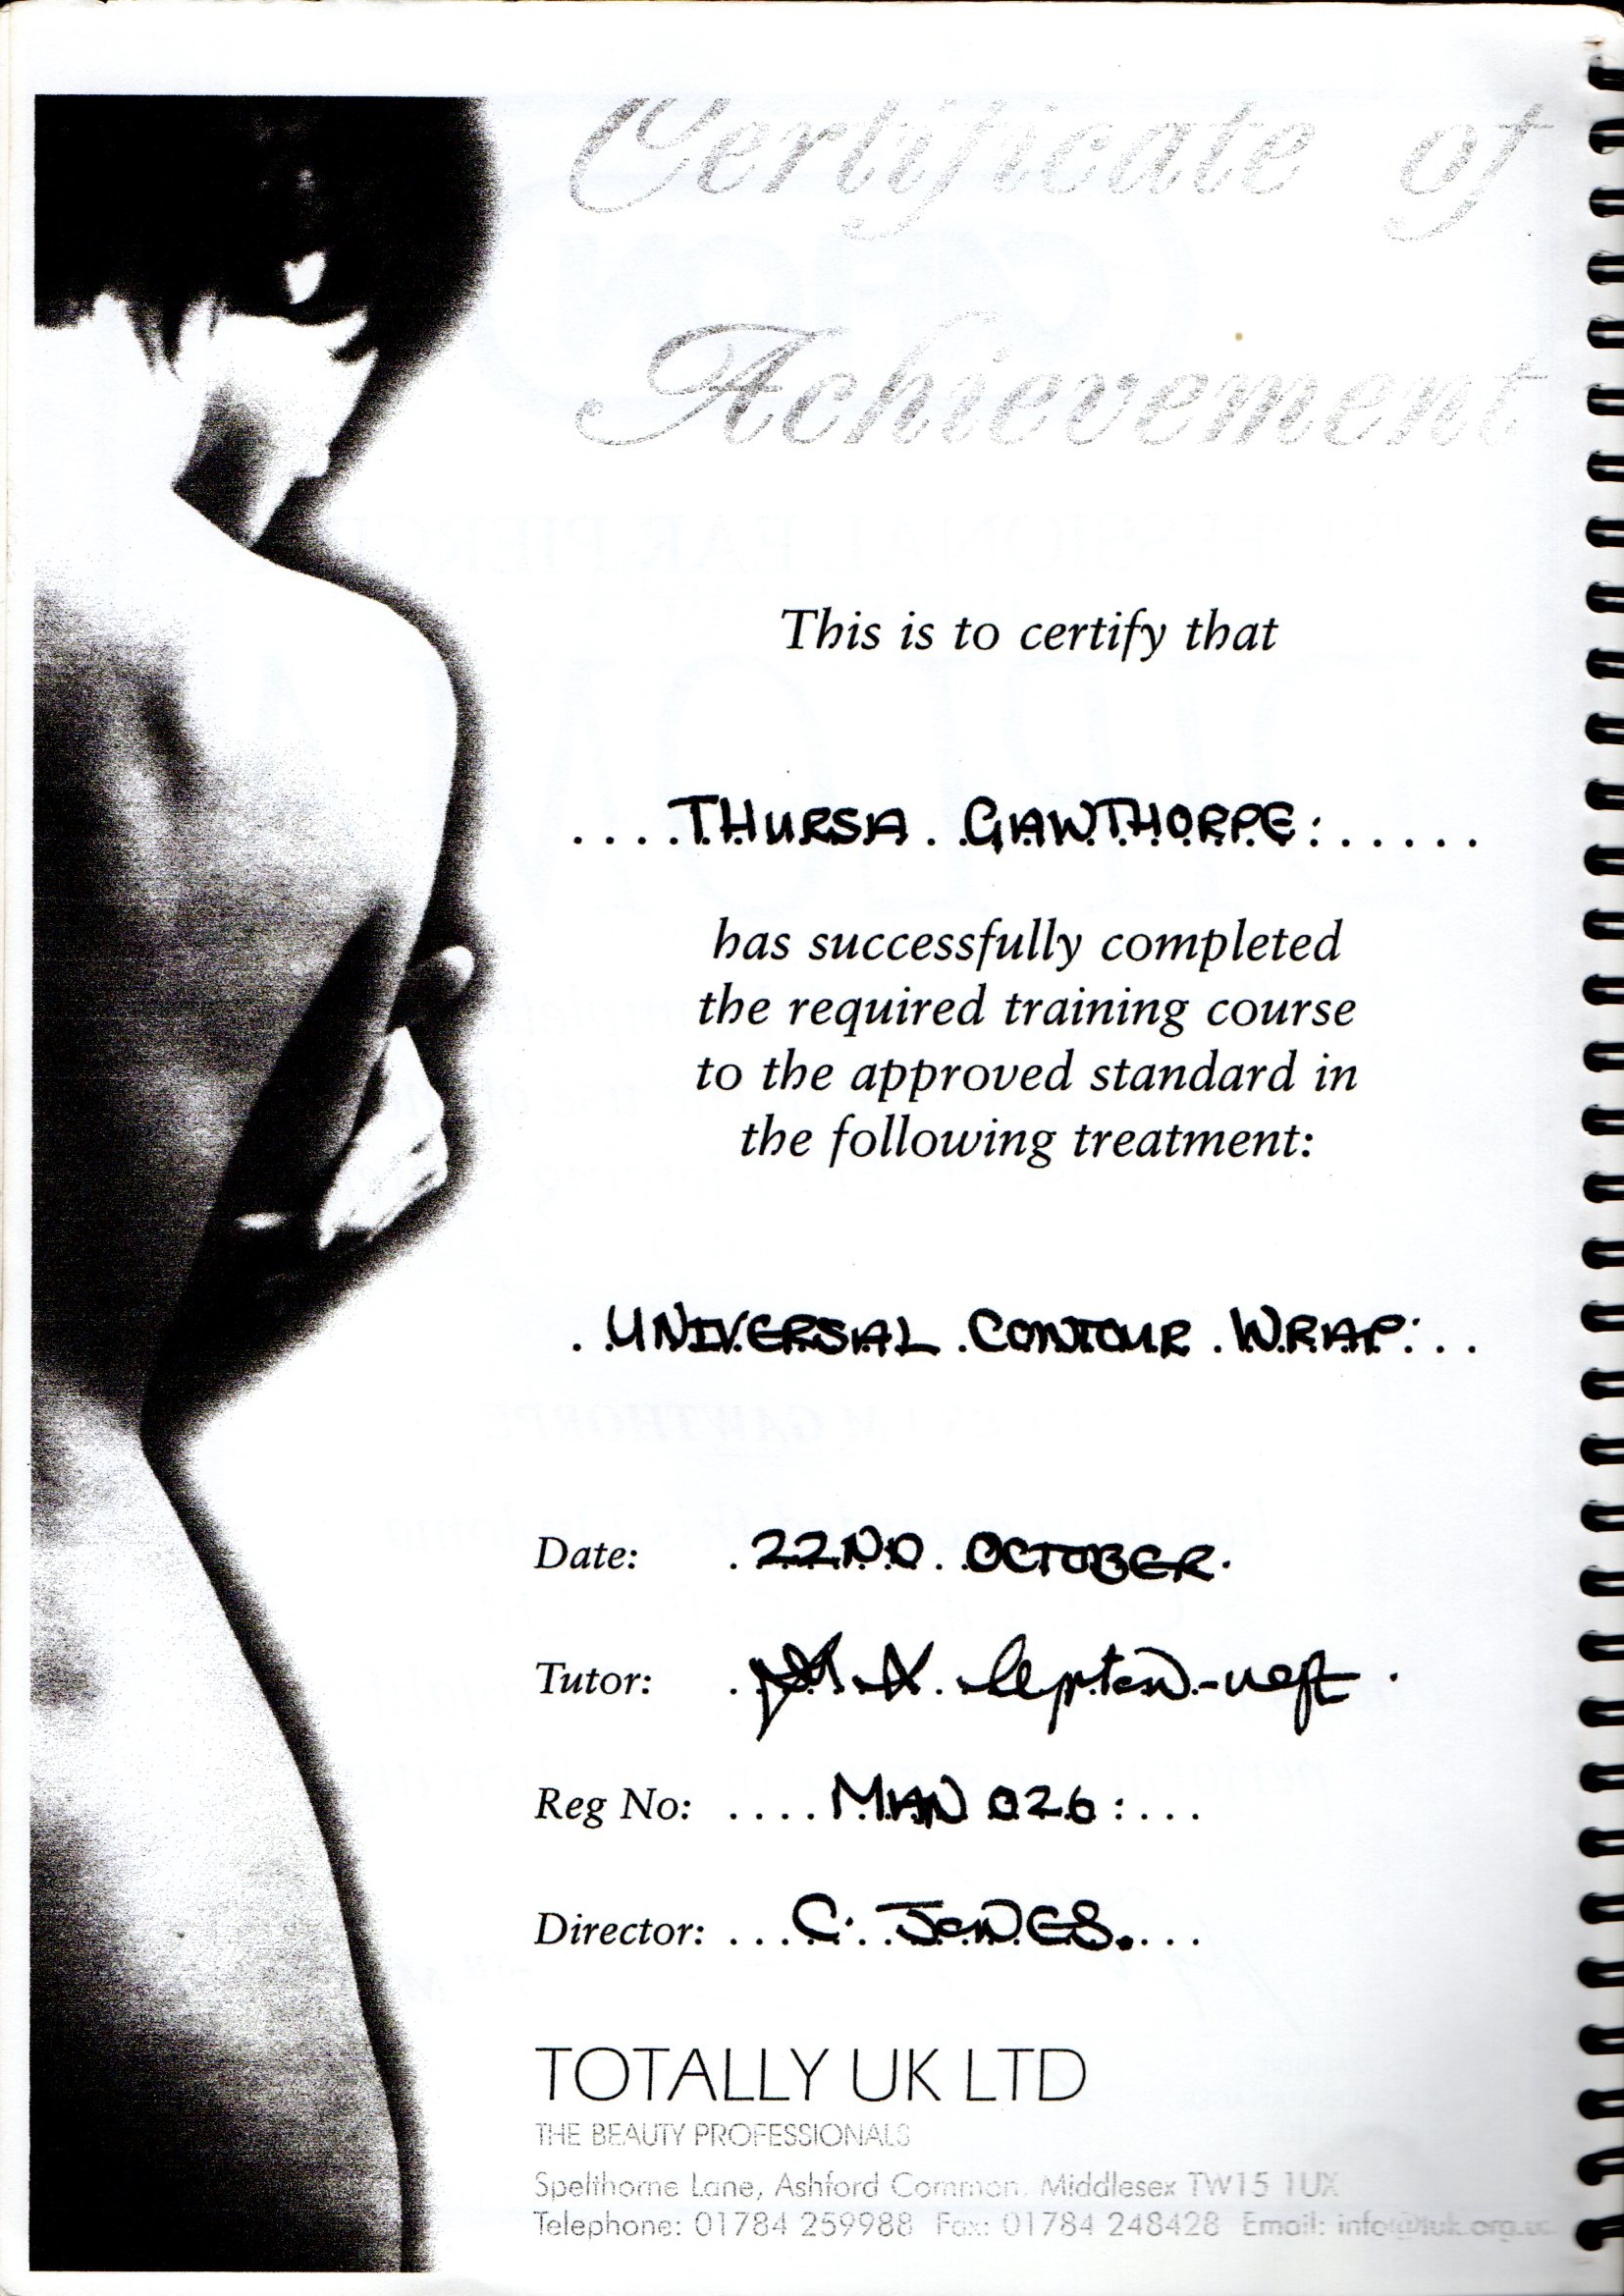 Certificate of
Achievement
This is to certify that
THURSA GAWTHORPE:
has successfully completed
the required training course
to the approved standard in
the following treatment:
UNIVERSAL CONTOUR WRAP:
Date: 22ND OCTOBER.
Tutor:
Reg No: MAN 026:
Director: C. JONES.
TOTALLY UK LTD
THE BEAUTY PROFESSIONALS
Spelthorne Lane, Ashford Common, Middlesex TW15 1UX
Telephone: 01784 259988 Fax: 01784 248428 Email: